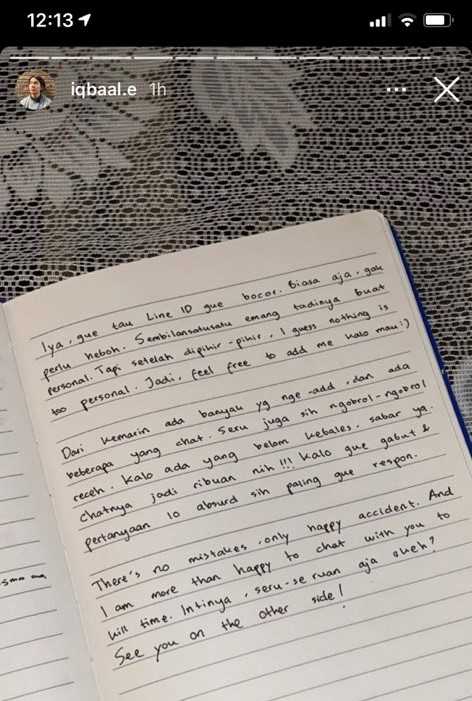 12:13
iqbaal.e 1h
Iya, gue tau Line ID gue bocor. Biasa aja, gak
perlu heboh. Sembilansatusatu emang tadinya buat
personal. Tapi setelah dipikir-pikir, I guess nothing is
too personal. Jadi, feel free to add me kalo mau:)
Dari kemarin ada banyak yg nge-add, dan ada
beberapa yang chat. Seru juga sih ngobrol-ngobrol
receh. Kalo ada yang belom kebales, sabar ya.
chatnya jadi ribuan nih!!! Kalo gue gabut &
pertanyaan lo absurd sih paling gue respon.
There's no mistakes, only happy accident. And
I am more than happy to chat with you to
kill time. Intinya, seru-seruan aja okeh?
See you on the other side!